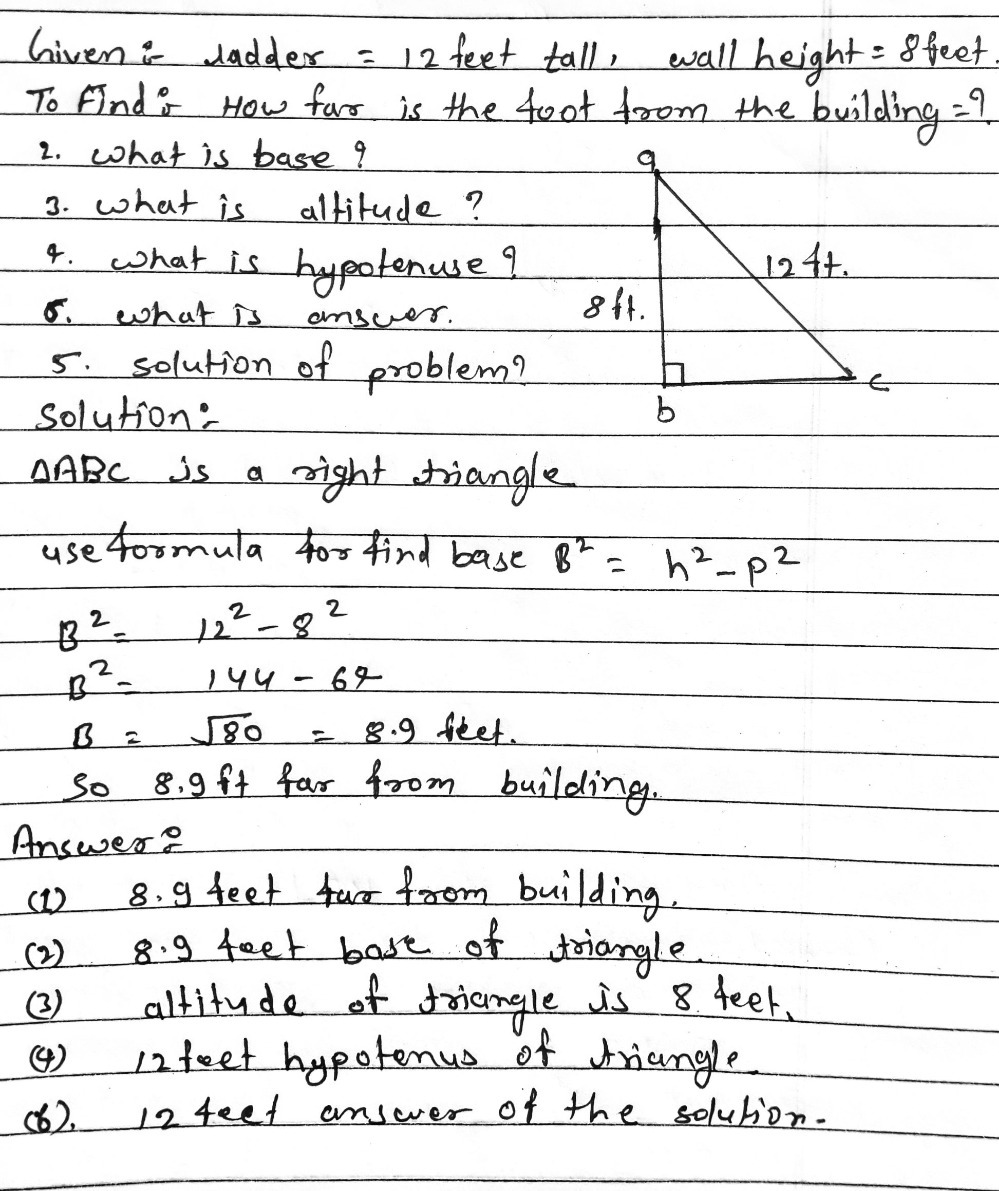 Given :- ladder = 12 feet tall, wall height = 8 feet.
To Find :- How far is the foot from the building = ?
2. what is base ?
3. what is altitude ?
4. what is hypotenuse ?
6. what is answer.
5. solution of problem?
a
12 ft.
8 ft.
b
c
Solution :-
△ABC is a right triangle
use formula for find base B² = h² - p²
B² = 12² - 8²
B² = 144 - 64
B = √80 = 8.9 feet.
So 8.9 ft far from building.
Answer :-
(1) 8.9 feet far from building.
(2) 8.9 feet base of triangle.
(3) altitude of triangle is 8 feet.
(4) 12 feet hypotenus of triangle.
(6). 12 feet answer of the solution.